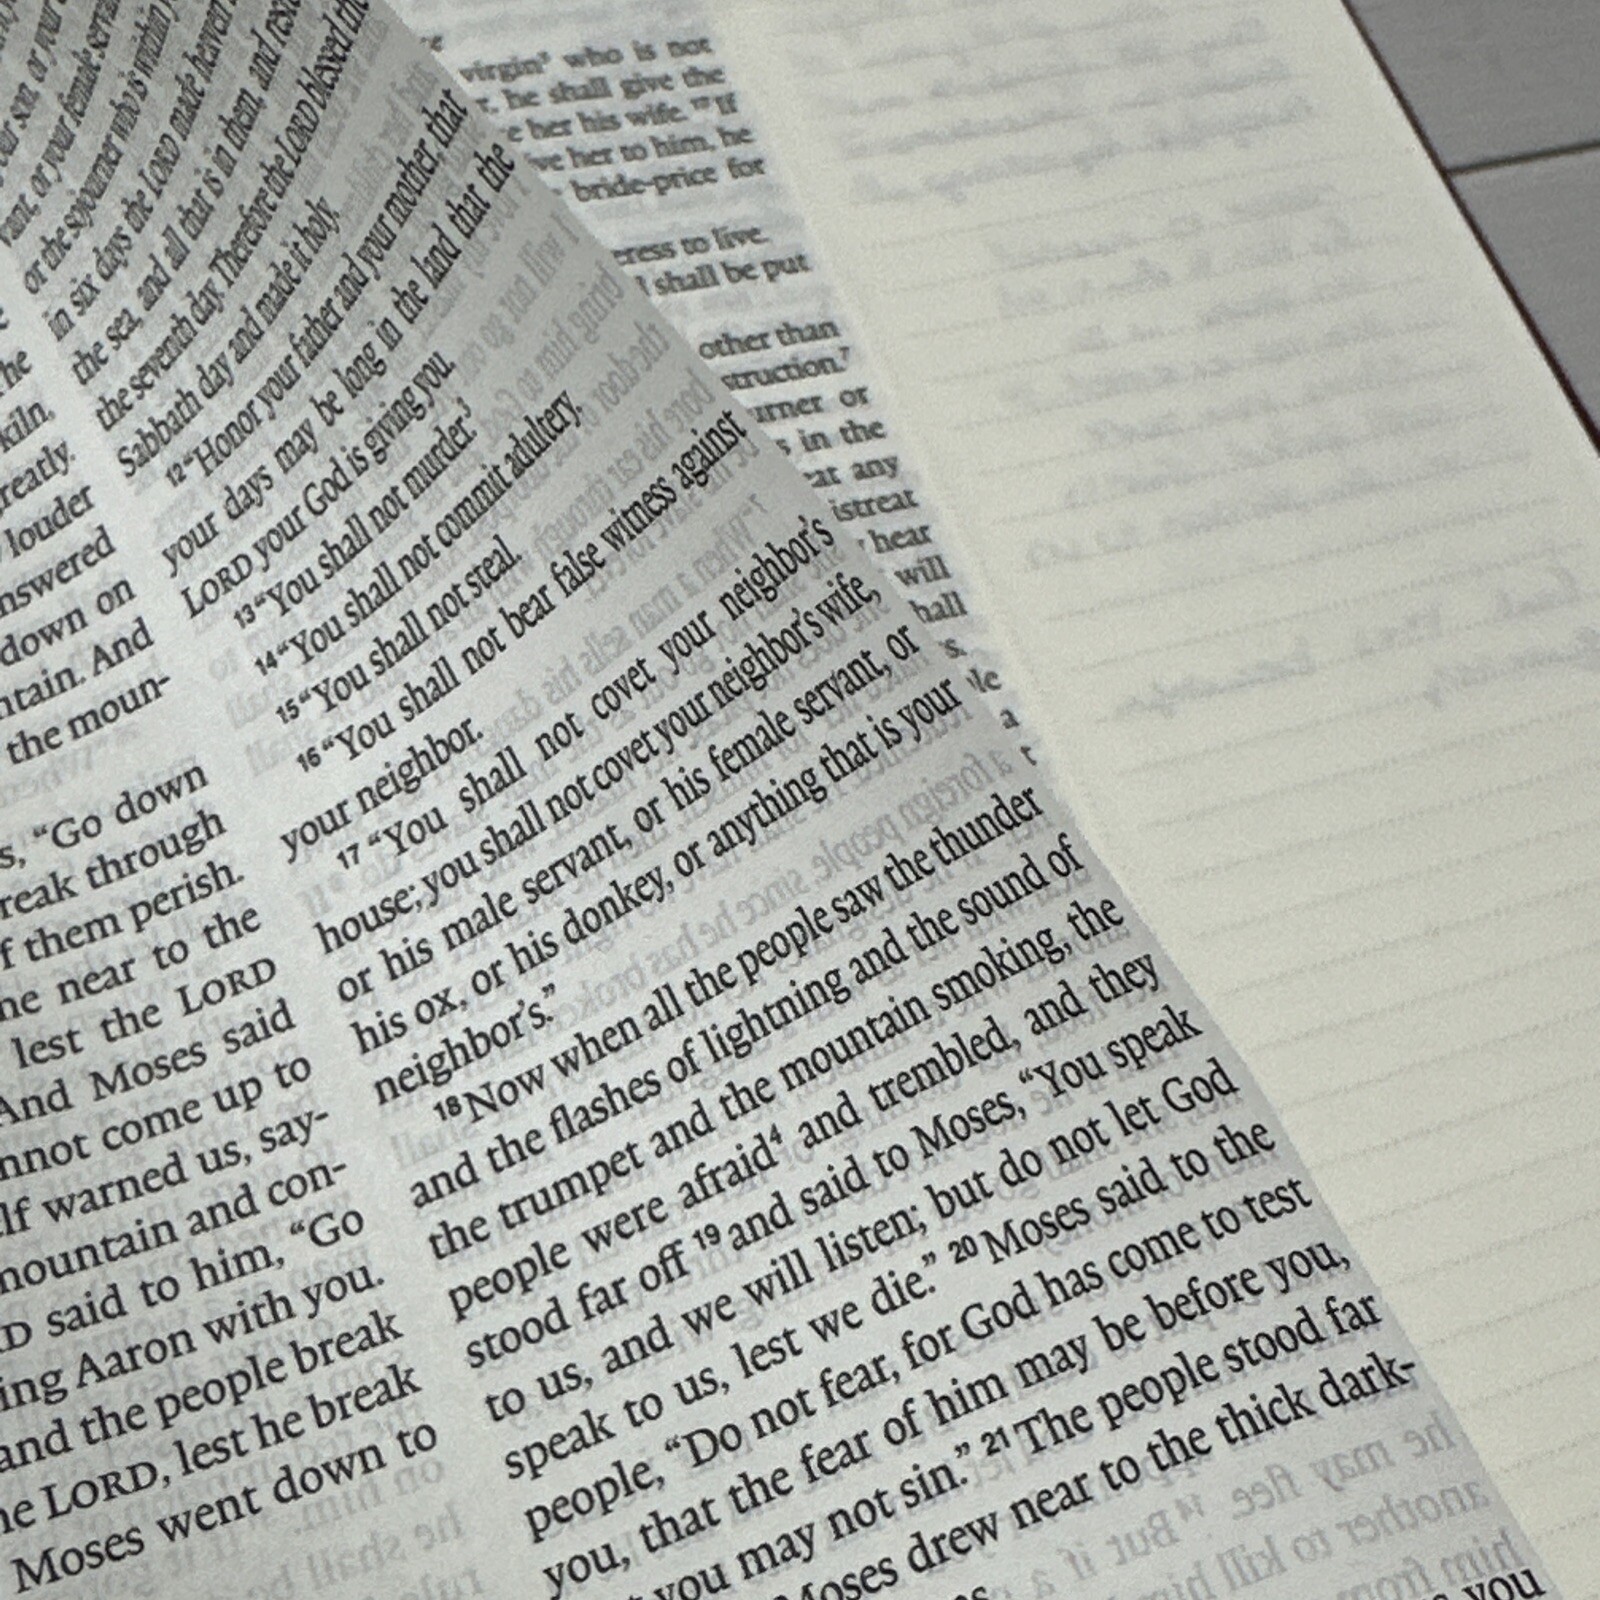 he
kiln,
greatly.
louder
answered
down on
the moun-
"Go down
break through
them perish.
near to the
lest the LORD
And Moses said
come up to
warned us, say-
mountain and con-
said to him, "Go
Aaron with you.
and the people break
LORD, lest he break
Moses went down to
your son, or your
or your female
or the sojourner who is within
in six days the LORD made heaven
the sea, and all that is in them, and
the seventh day. Therefore the LORD blessed the
Sabbath day and made it holy.
12 "Honor your father and your mother, that
your days may be long in the land that the
LORD your God is giving you.
13 "You shall not murder.3
14 "You shall not commit adultery.
15 "You shall not steal.
16 "You shall not bear false witness against
your neighbor.
17 "You shall not covet your neighbor's
house; you shall not covet your neighbor's wife,
or his male servant, or his female servant, or
his ox, or his donkey, or anything that is your
neighbor's."
18 Now when all the people saw the thunder
and the flashes of lightning and the sound of
the trumpet and the mountain smoking, the
people were afraid4 and trembled, and they
stood far off 19 and said to Moses, "You speak
to us, and we will listen; but do not let God
speak to us, lest we die." 20 Moses said to the
people, "Do not fear, for God has come to test
you, that the fear of him may be before you,
you may not sin." 21 The people stood far
Moses drew near to the thick dark-
you
virgin5 who is not
he shall give the
her his wife. 17 If
her to him, he
bride-price for
to live.
shall be put
other than
or
in the
any
hear
will
a